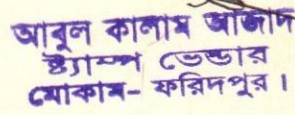 আবুল কালাম আজাদ
ষ্ট্যাম্প ভেন্ডার
মোকাম- ফরিদপুর।